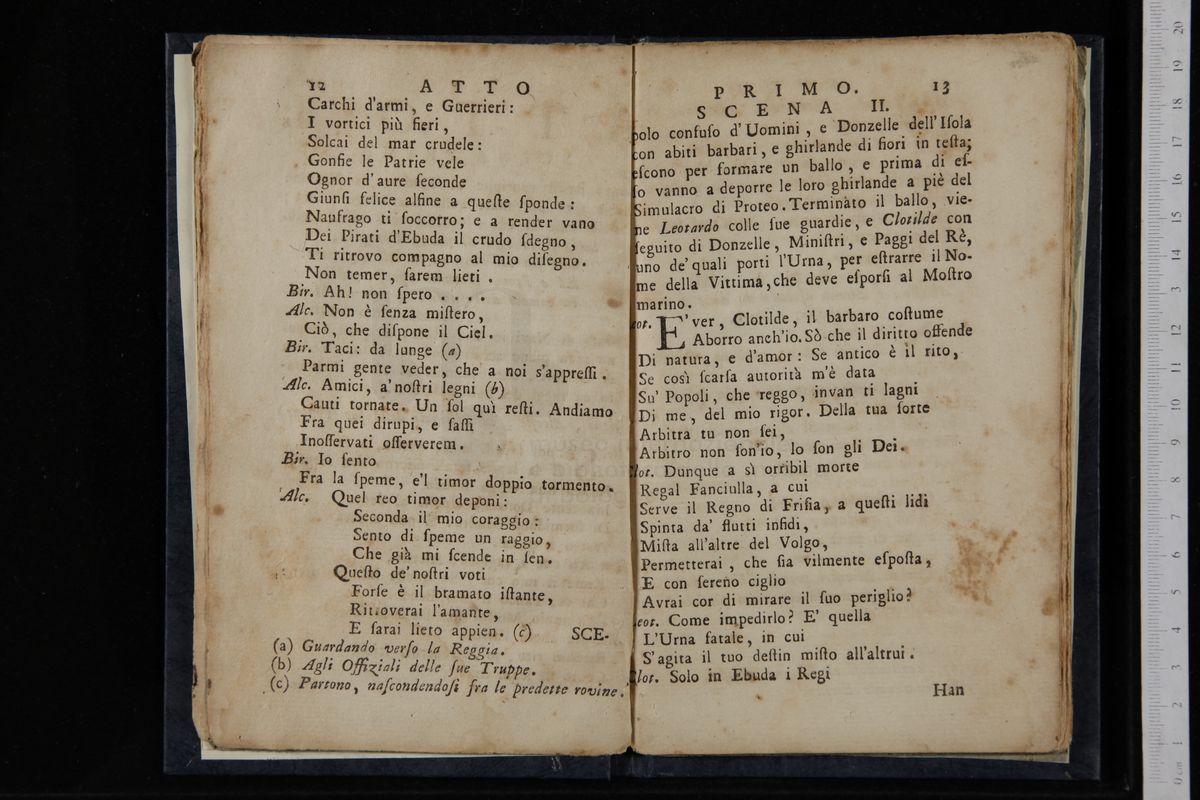 12 ATTO
Carchi d'armi, e Guerrieri:
I vortici più fieri,
Solcai del mar crudele:
Gonfie le Patrie vele
Ognor d'aure ſeconde
Giunſi felice alfine a queſte ſponde:
Naufrago ti ſoccorro; e a render vano
Dei Pirati d'Ebuda il crudo ſdegno,
Ti ritrovo compagno al mio diſegno.
Non temer, ſarem lieti.
Bir. Ah! non ſpero . . . .
Alc. Non è ſenza miſtero,
Ciò, che diſpone il Ciel.
Bir. Taci: da lunge (a)
Parmi gente veder, che a noi s'appreſſi.
Alc. Amici, a'noſtri legni (b)
Cauti tornate. Un ſol quì reſti. Andiamo
Fra quei dirupi, e ſaſſi
Inoſſervati oſſerverem.
Bir. Io ſento
Fra la ſpeme, e'l timor doppio tormento.
Alc. Quel reo timor deponi:
Seconda il mio coraggio:
Sento di ſpeme un raggio,
Che già mi ſcende in ſen.
Queſto de'noſtri voti
Forſe è il bramato iſtante,
Ritroverai l'amante,
E ſarai lieto appien. (c) SCE-
(a) Guardando verſo la Reggia.
(b) Agli Offiziali delle ſue Truppe.
(c) Partono, naſcondendoſi fra le predette rovine.
PRIMO. 13
SCENA II.
polo confuſo d'Uomini, e Donzelle dell'Iſola
con abiti barbari, e ghirlande di fiori in teſta;
eſcono per formare un ballo, e prima di eſ-
ſo vanno a deporre le loro ghirlande a piè del
Simulacro di Proteo. Terminato il ballo, vie-
ne Leotardo colle ſue guardie, e Clotilde con
ſeguito di Donzelle, Miniſtri, e Paggi del Rè,
uno de'quali porti l'Urna, per eſtrarre il No-
me della Vittima, che deve eſporſi al Moſtro
marino.
eot. E'ver, Clotilde, il barbaro coſtume
Aborro anch'io. Sò che il diritto offende
Di natura, e d'amor: Se antico è il rito,
Se così ſcarſa autorità m'è data
Su' Popoli, che reggo, invan ti lagni
Di me, del mio rigor. Della tua ſorte
Arbitra tu non ſei,
Arbitro non ſon'io, lo ſon gli Dei.
lot. Dunque a sì orribil morte
Regal Fanciulla, a cui
Serve il Regno di Friſia, a queſti lidi
Spinta da' flutti infidi,
Miſta all'altre del Volgo,
Permetterai, che ſia vilmente eſpoſta,
E con ſereno ciglio
Avrai cor di mirare il ſuo periglio?
eot. Come impedirlo? E' quella
L'Urna fatale, in cui
S'agita il tuo deſtin miſto all'altrui.
lot. Solo in Ebuda i Regi
Han
20
19
18
17
16
15
14
13
12
11
10
9
8
7
6
5
4
3
2
1
0 cm